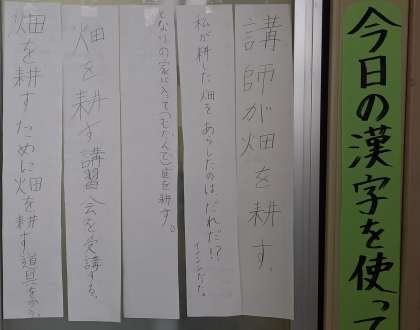 今日の漢字を使って
講師が畑を耕す。
私が耕した畑をあらしたのはだれだ!?
イノシシだた。
となりの家に入って(むだんで)庭を耕す。
畑を耕す講習会を受講する。
畑を耕すために畑を耕す道具を買う。